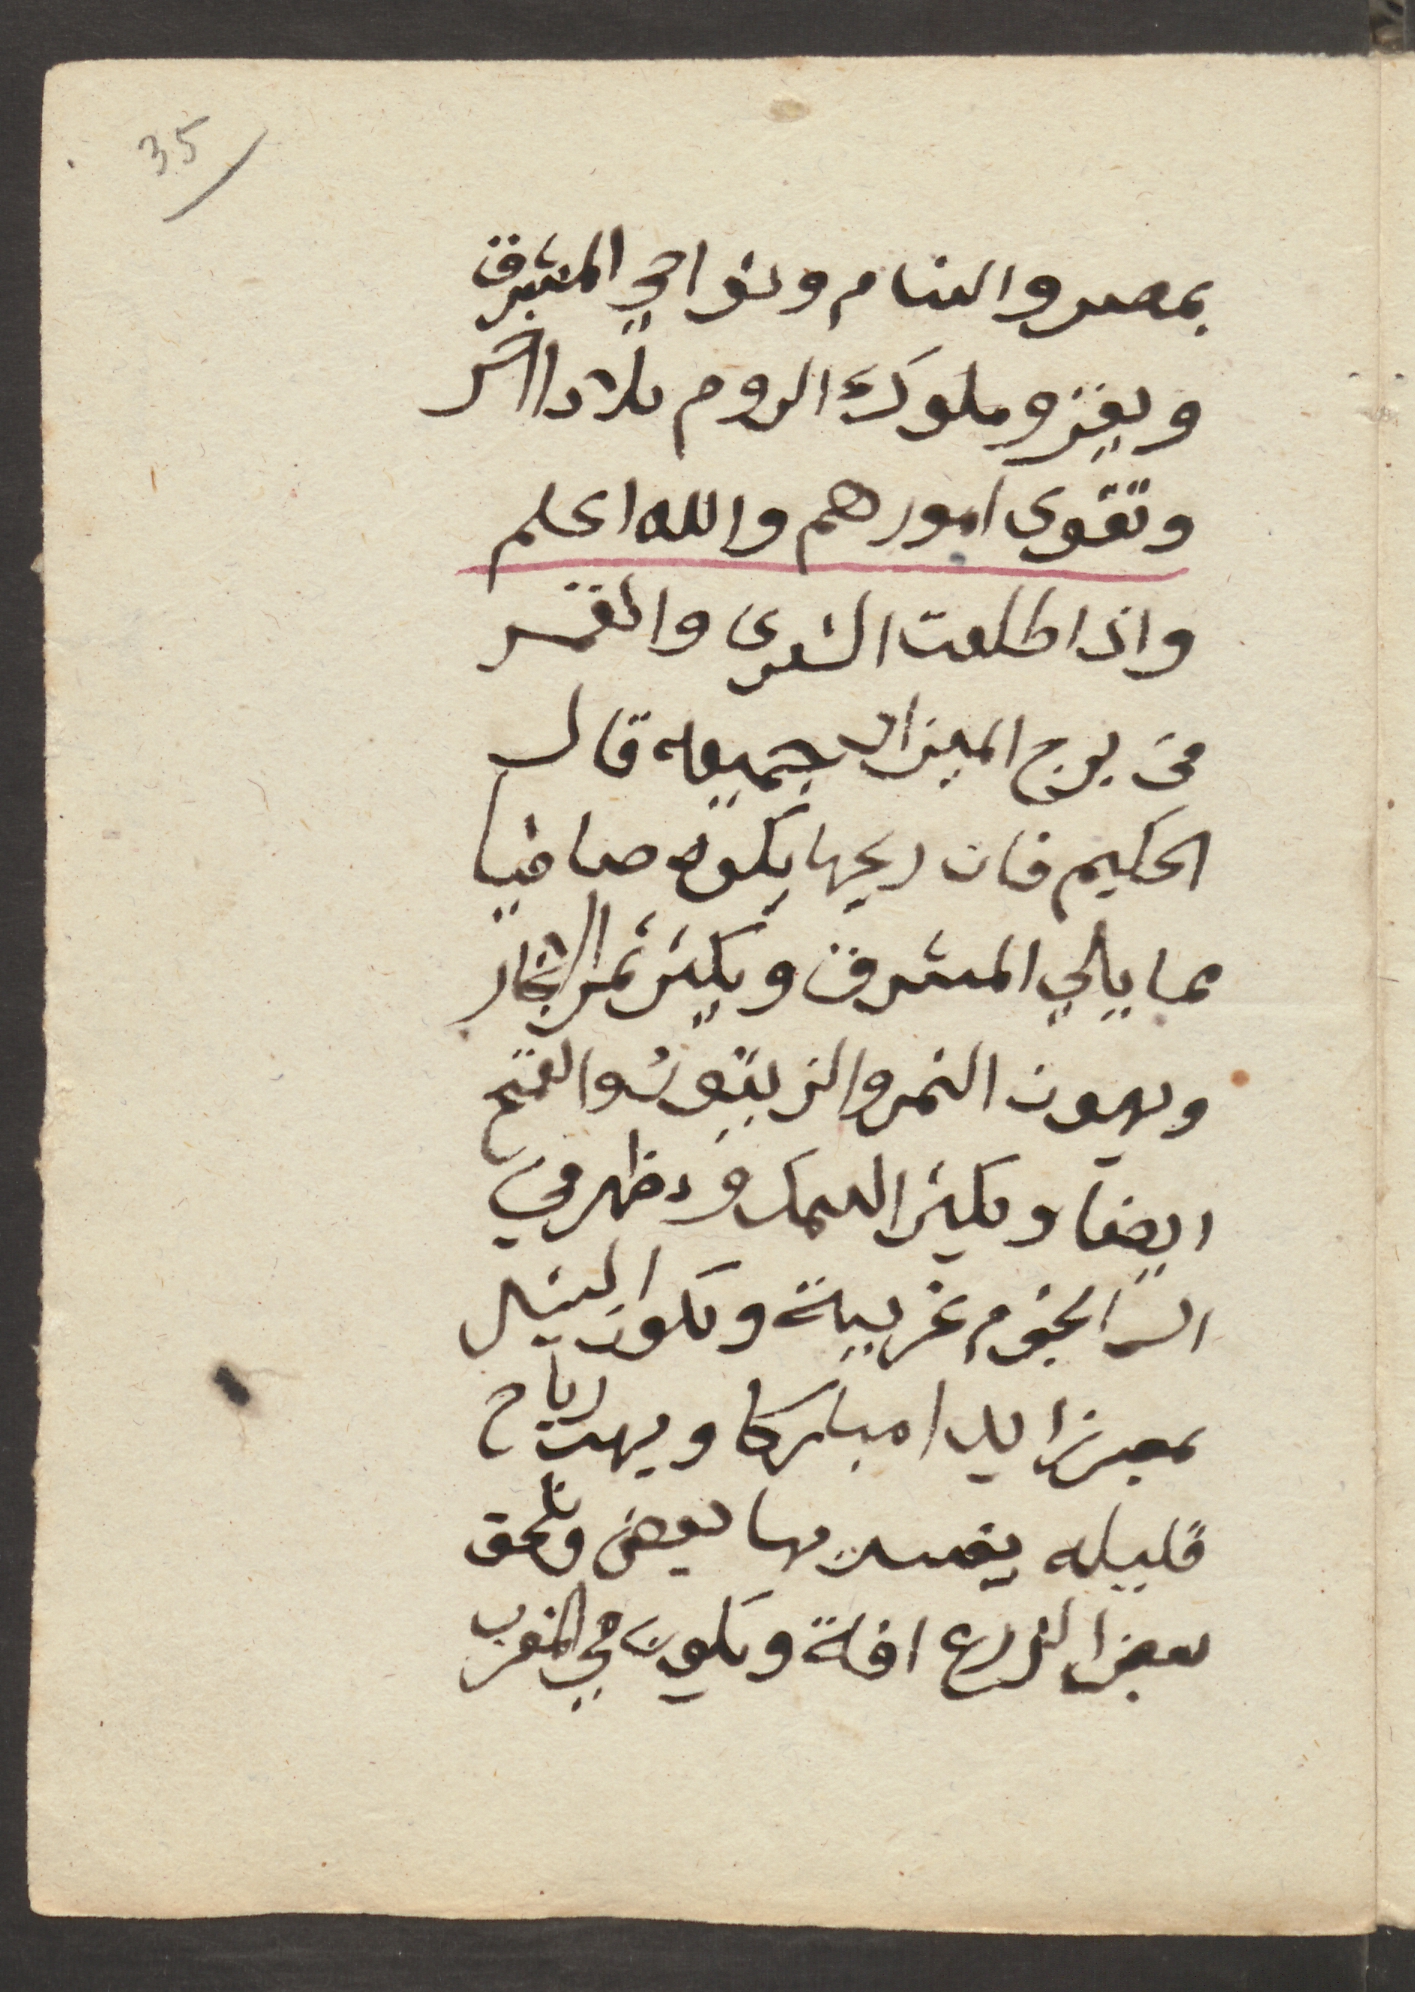 35
بمصر والشام ونواحي المشرق
ويغزو ملوك الروم بلاد
وتقوى امورهم والله اعلم
واذا طلعت الشعرى والقمر
في برج الميزان جميعه قال
الحكيم فان ريحها يكون صافيا
مما يلي المشرق ويكثر ثمر الاشجار
ويهون التمر والزيتون والقمح
ايضا ويكثر السمك ويظهر في
السما نجوم غريبة ويكون النيل
بمصر زايدا مباركا ويهب رياح
قليله يفسد بها بعض ويلحق
بعض الزرع افة ويكون في المغرب